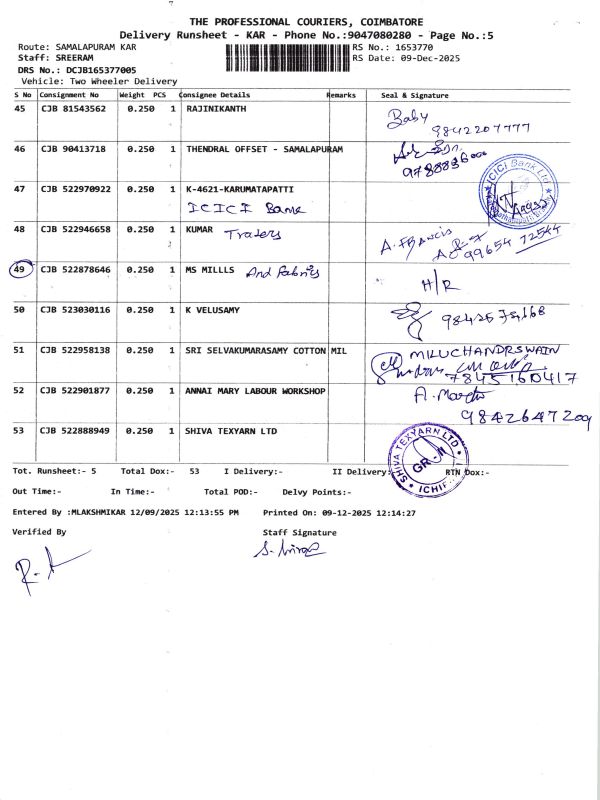 THE PROFESSIONAL COURIERS, COIMBATORE
Delivery Runsheet - KAR - Phone No.:9047080280 - Page No.:5
Route: SAMALAPURAM KAR
RS No.: 1653770
Staff: SREERAM
RS Date: 09-Dec-2025
DRS No.: DCJB165377005
Vehicle: Two Wheeler Delivery
S No Consignment No Weight PCS Consignee Details Remarks Seal & Signature
45 CJB 81543562 0.250 1 RAJINIKANTH Baby
9842207777
46 CJB 90413718 0.250 1 THENDRAL OFFSET - SAMALAPURAM
47 CJB 522970922 0.250 1 K-4621-KARUMATAPATTI
ICICI Bank
ICICI Bank Ltd
48 CJB 522946658 0.250 1 KUMAR Traders A. Francis
99654 72544
49 CJB 522878646 0.250 1 MS MILLLS And Fabrics
H/R
50 CJB 523030116 0.250 1 K VELUSAMY
51 CJB 522958138 0.250 1 SRI SELVAKUMARASAMY COTTON MIL MILUCHANDRSWAIN
7845160417
52 CJB 522901877 0.250 1 ANNAI MARY LABOUR WORKSHOP
9842647209
53 CJB 522888949 0.250 1 SHIVA TEXYARN LTD
SHIVA TEXYARN LTD
GR-II
Tot. Runsheet:- 5 Total Dox:- 53 I Delivery:- II Delivery:- RTN Dox:-
Out Time:- In Time:- Total POD:- Delvy Points:-
Entered By :MLAKSHMIKAR 12/09/2025 12:13:55 PM Printed On: 09-12-2025 12:14:27
Verified By Staff Signature